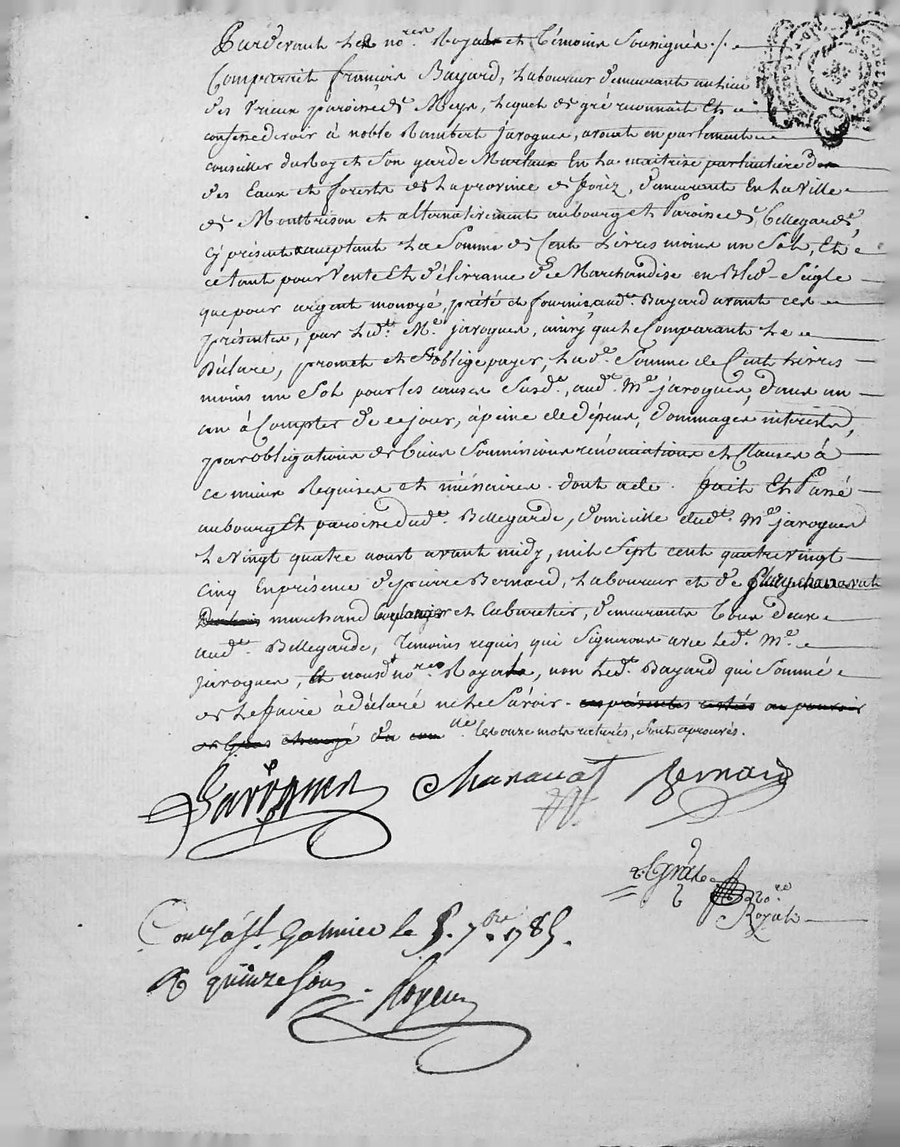 Pardevant Le no.re Royal et Témoins Soussignés ./.
Comparait francois Bayard, Laboureur demeurant au lieu
des vrieux paroisse de Meys, Lequel de gré reconnait Et
confesse devoir à noble Rambert Jaroguer, avocat en parlement
conseiller du Roy et Son garde Marteaux En La maitrise particuliere
des Eaux et forests de La province de forèz, demeurant En La Ville
de Montbrison et alternativement au bourg et Paroisse de Bellegarde,
Cy présent acceptant La Somme de Cent Livres moins un Sol, Et
ce tant pour Vente Et délivrance de Marchandise en Bled-Seigle
que pour argent monoyé, prété et fournis aud.t Bayard avant ces
présentes, par Led.t M.e jaroguer, ainsy que Le Comparant Le
Déclare, promet et S'oblige payer, La d.e Somme de Cent Livres
moins un Sol pour les causes Susd.es, aud.t M.e jaroguer, dans un
an à Compter de ce jour, à peine de dépens, dommages intérests,
par obligations de biens Soumissions rénonciations et Clauses à
ce mieux Requises et nécessaires. dont acte. fait Et Passé
au bourg Et paroisse dud.t Bellegarde, domicille dud.t M.e jaroguer
Le vingt quatre aoust avant midy, mil Sept cent quatre vingt
cinq En présence de pierre Bernard, Laboureur et de chanavat
marchand et Cabaretier, demeurants tous deux
aud.t Bellegarde, Témoins requis qui Signeront avec Led.t M.e
jaroguer, Et nousd.t no.re Royal, non Led.t Bayard qui Sommé
de Le faire à déclaré ne Le Savoir. ces présentes
Les onze mots raturés, sont aprouvés.
Jaroguer Chanavat Bernard
no.re
Royal
Con.lé à S.t Galmier le 5. 7.bre 1785.
R quinze Sous